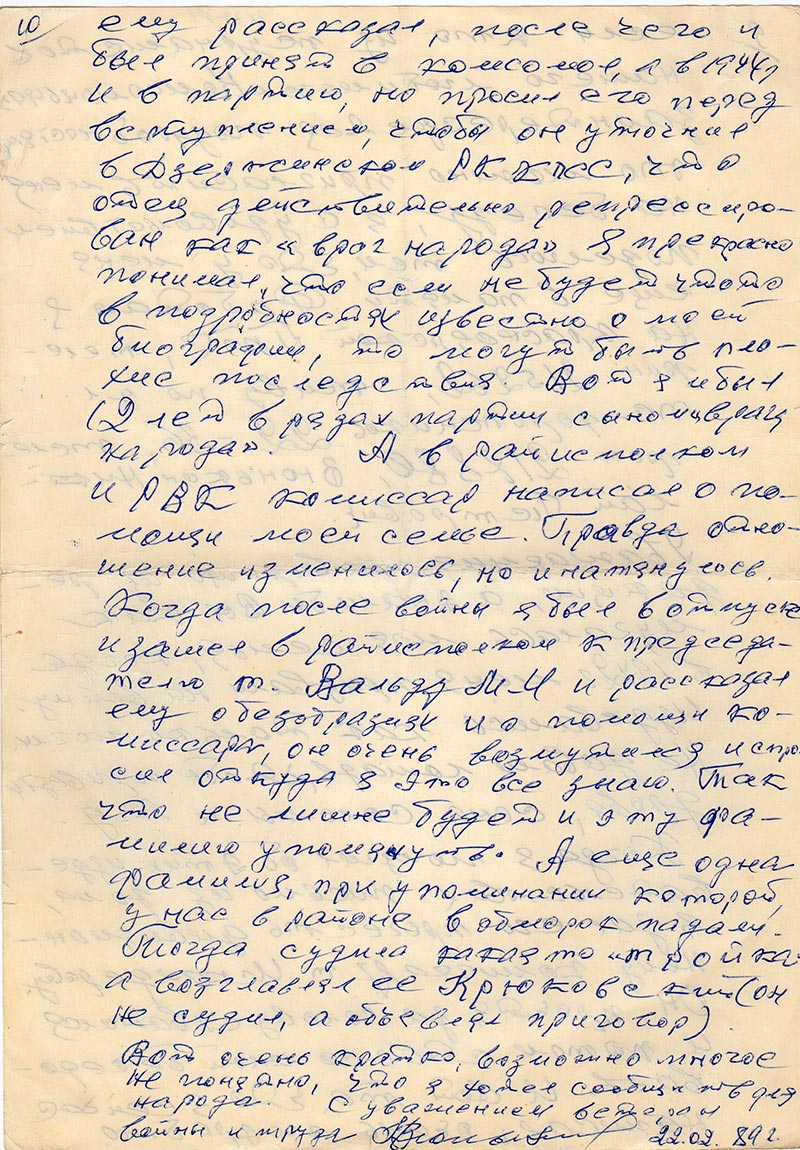 10 ему рассказал, после чего и
был принят в комсомол, а в 1944г
и в партию, но просил его перед
вступлением, чтобы он уточнил
в Дзержинском РК КПСС, что
отец действительно репрессиро-
ван как «враг народа» Я прекрасно
понимал, что если не будет что то
в подробностях известно о моей
биографии, то могут быть пло-
хие последствия. Вот я и был
12 лет в рядах партии сыном „врага
народа”. А в райисполком
и РВК комиссар написал о по-
мощи моей семье. Правда отно-
шение изменилось, но и натянулось.
Когда после войны я был в отпуске
и зашел в райисполком к председа-
телю т. Вальду М И и рассказал
ему о безобразиях и о помощи ко-
миссара, он очень возмутился и спро-
сил откуда я это все знаю. Так
что не лишне будет и эту фа-
милию упомянуть. А еще одна
фамилия, при упоминании которой,
у нас в районе в обморок падали.
Тогда судила какая то «тройка»
а возглавлял ее Крюковский (он
не судил, а объевлял приговор).
Вот очень кратко, возможно многое
не понятно, что я хотел сообщить для
народа. С уважением ветеран
войны и труда 22.02.89 г.